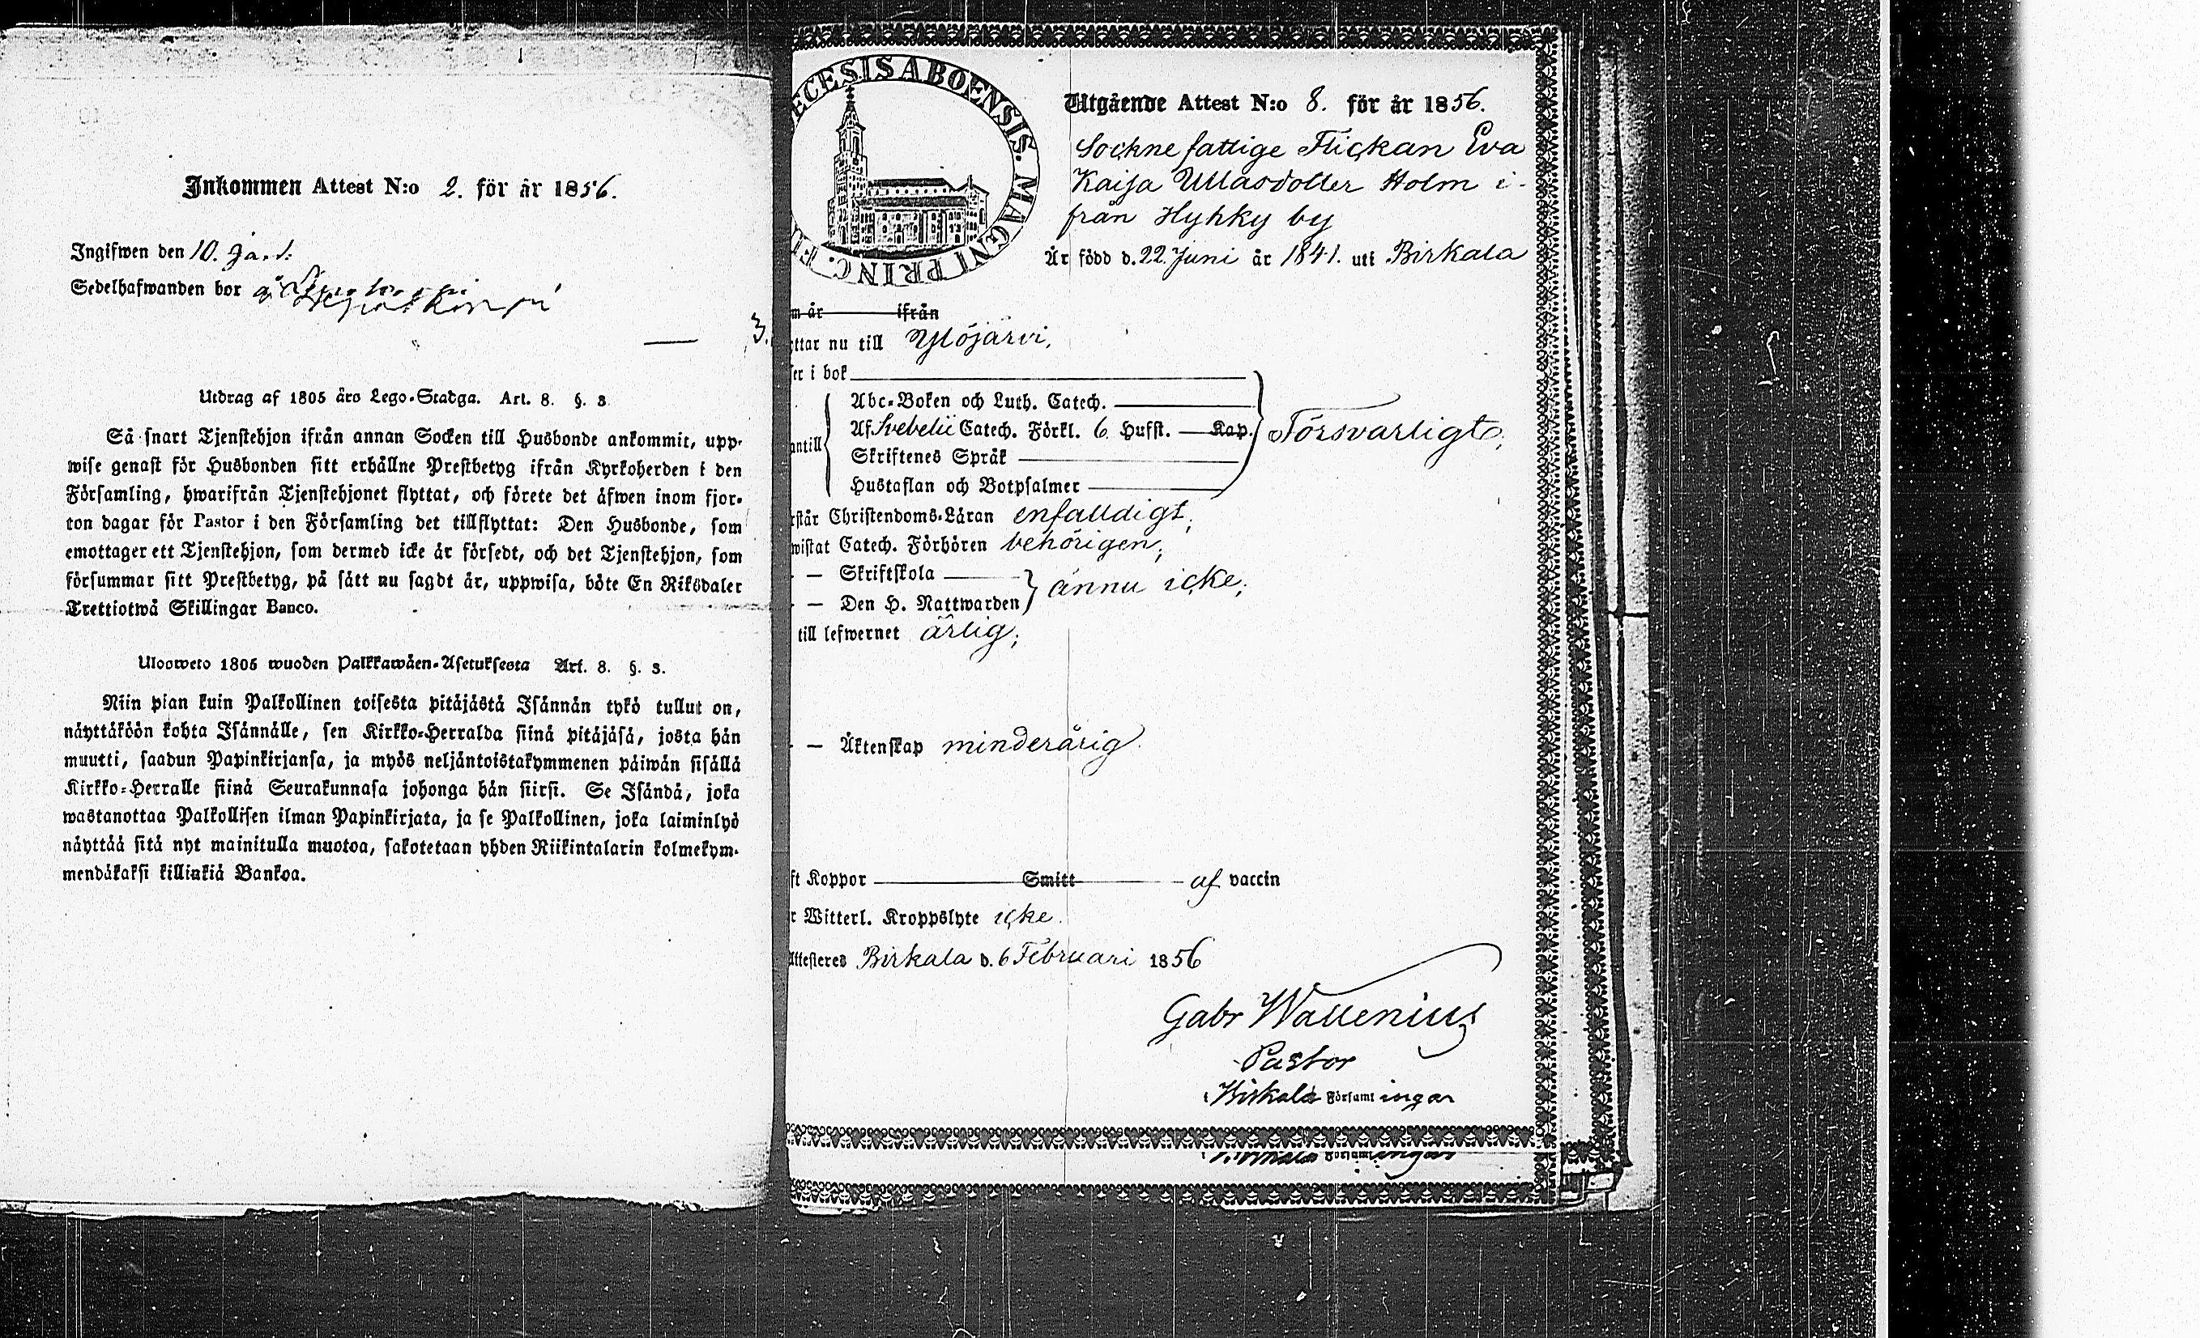 Inkommen Attest N:o 2. för år 1856.
Ingifwen den 10. Ja
Sedelhafwanden bor å
3.
Utdrag af 1805 års Lego-Stadga. Art. 8. §. 3.
Så snart Tjenstehjon ifrån annan Socken till Husbonde ankommit, upp-
wise genast för Husbonden sitt erhållne Prestbetyg ifrån Kyrkoherden i den
Församling, hwarifrån Tjenstehjonet flyttat, och förete det äfwen inom fjor-
ton dagar för Pastor i den Församling det tillflyttat: Den Husbonde, som
emottager ett Tjenstehjon, som dermed icke är försedt, och det Tjenstehjon, som
försummar sitt Prestbetyg, på sätt nu sagdt är, uppwisa, böte En Riksdaler
Trettiotwå Skillingar Banco.
Uloswето 1805 wuoden Palkkawäen-Asetuksesta Art. 8. §. 3.
Niin pian kuin Palkollinen toisesta pitäjästä Isännän tykö tullut on,
näyttäköön kohta Isännälle, sen Kirkko-Herralda siinä pitäjäsä, josta hän
muutti, saadun Papinkirjansa, ja myös neljäntoistakymmenen päiwän sisällä
Kirkko-Herralle siinä Seurakunnasa johonga hän siirsi. Se Isändä, joka
wastanottaa Palkollisen ilman Papinkirjata, ja se Palkollinen, joka laiminlyö
näyttää sitä nyt mainitulla muotoa, sakotetaan yhden Riikintalarin kolmekym-
mendäkaksi killinkiä Bankoa.
ECESIS ABOENSIS. MAGNI PRINC. FI
Utgående Attest N:o 8. för år 1856.
Sockne fattige Flickan Eva
Kaisa Ullasdotter Holm i-
från Hyhky by
Är född d. 22. Juni år 1841. uti Birkala
m år ifrån
ttar nu till Ylöjärvi.
ser i bok
Abc-Boken och Luth. Catech.
antill Af Svebelii Catech. Förkl. 6 Hufst. Kap. Försvarligt;
Skriftenes Språk
Hustaflan och Botpsalmer
rstår Christendoms-Läran enfalldigt;
wistat Catech. Förhören behörigen;
- — Skriftskola
- — Den H. Nattwarden ännu icke;
till lefwernet ärlig;
- — Äktenskap minderårig.
ft Koppor Smitt af vaccin
r Witterl. Kroppslyte icke.
Attesteres Birkala d. 6 Februari 1856
Gabr Wallenius
Pastor
i Birkala Församl ingar